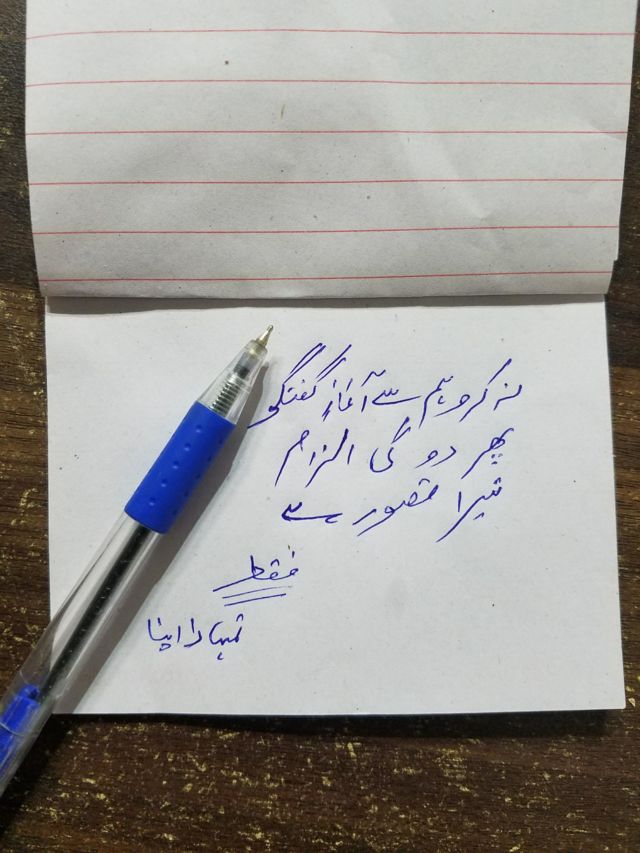 نہ کرو ہم سے آغازِ گفتگو
پھر دو گی الزام
تیرا قصور ہے
فقط
تمہارا اپنا